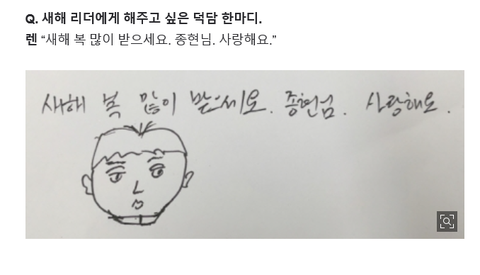 Q. 새해 리더에게 해주고 싶은 덕담 한마디.
렌 “새해 복 많이 받으세요. 종현님. 사랑해요.”
새해 복 많이 받으세요. 종현님. 사랑해요.